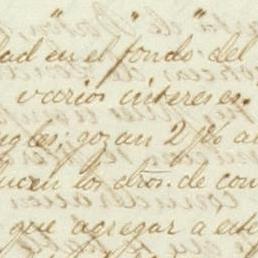 " " "
dad en el fondo del
varios intereses.
ngles; gozan 2 p% a
ucen los dros. de con
que agregar a este